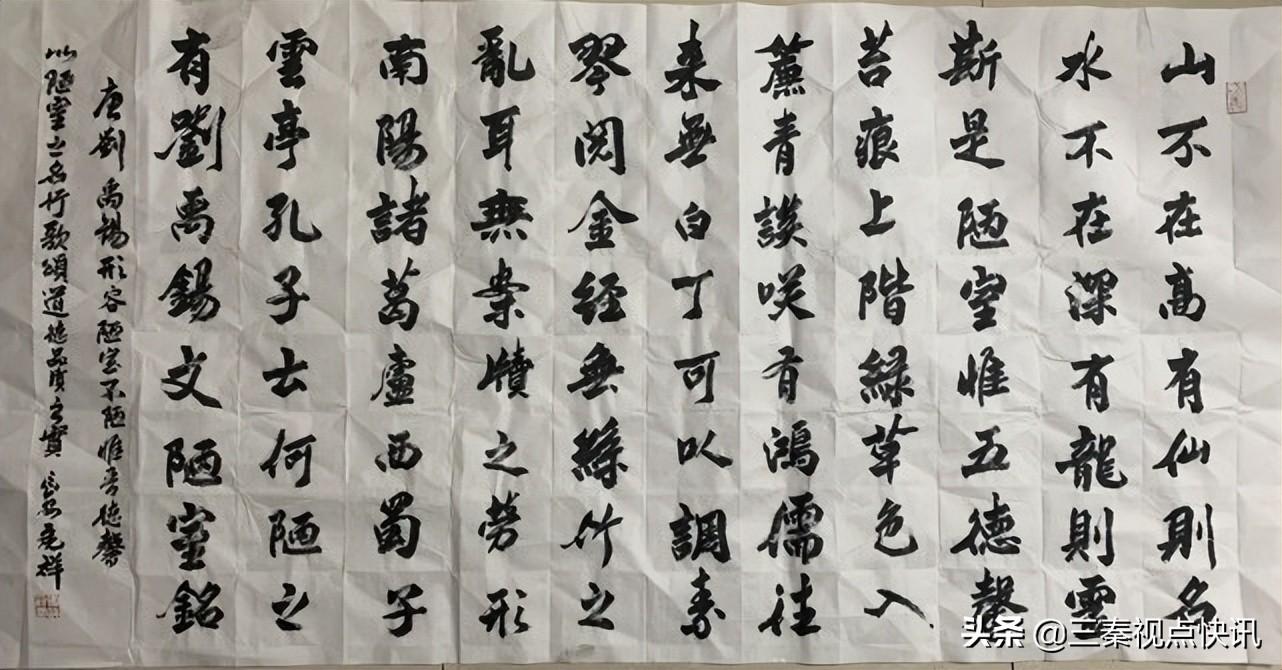 山不在高有仙則名
水不在深有龍則靈
斯是陋室惟五德馨
苔痕上階緑草色入
簾青談咲有鴻儒往
来無白丁可以調素
琴阅金经無絲竹之
亂耳無案牘之勞形
南陽諸葛廬西蜀子
雲亭孔子云何陋之
有劉禹錫文陋室銘
唐劉禹錫形容陋室不陋惟吾德馨
以陋室之名行歌頌道德品質之實
头条 @三秦视点快讯